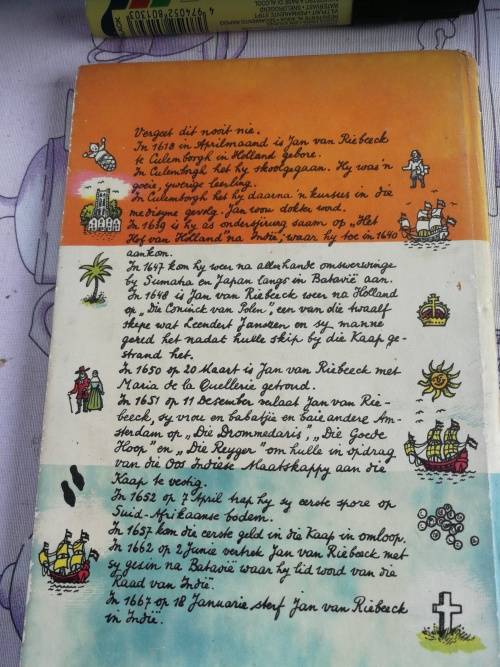 4 974052 801303
Vergeet dit nooit nie.
In 1618 in Aprilmaand is Jan van Riebeeck
te Culemborgh in Holland gebore.
In Culemborgh het hy skoolgegaan. Hy was 'n
goeie, ywerige leerling.
In Culemborgh het hy daarna 'n kursus in die
medisyne gevolg. Jan wou dokter word.
In 1639 is hy as ondersjirurg saam op „Het
Hof van Holland" na Indië, waar hy toe in 1640
aankom.
In 1647 kom hy weer na allerhande omswerwinge
by Sumatra en Japan langs in Batavië aan.
In 1648 is Jan van Riebeeck weer na Holland
op „Die Coninck van Polen", een van die twaalf
skepe wat Leendert Janszen en sy manne
gered het nadat hulle skip by die Kaap ge-
strand het.
In 1650 op 20 Maart is Jan van Riebeeck met
Maria de la Quellerie getroud.
In 1651 op 11 Desember verlaat Jan van Rie-
beeck, sy vrou en babatjie en baie andere Am-
sterdam op „Die Drommedaris", „Die Goede
Hoop" en „Die Reyger" om hulle in opdrag
van die Oos Indiese Maatskappy aan die
Kaap te vestig.
In 1652 op 7 April trap hy sy eerste spore op
Suid-Afrikaanse bodem.
In 1657 kom die eerste geld in die Kaap in omloop.
In 1662 op 2 Junie vertrek Jan van Riebeeck met
sy gesin na Batavië waar hy lid word van die
Raad van Indië.
In 1667 op 18 Januarie sterf Jan van Riebeeck
in Indië.